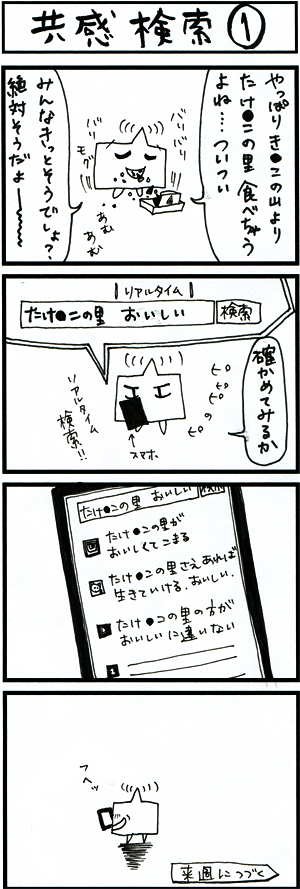 共感検索①
やっぱりき●この山より
たけ●この里食べちゃう
よね…ついつい
みんなきっとそうでしょ?
絶対そうだよ〜〜
バリバリ
バリ
モグ
あむ
あむ
リアルタイム
たけ●この里 おいしい
検索
確かめてみるか
ピピピピのピ
リアルタイム
検索!!
↑
スマホ
たけ●この里 おいしい
検索
たけ●この里が
おいしくてこまる
たけ●この里さえあれば
生きていける。おいしい。
たけ●コの里の方が
おいしいに違いない
フヘッ
来週につづく